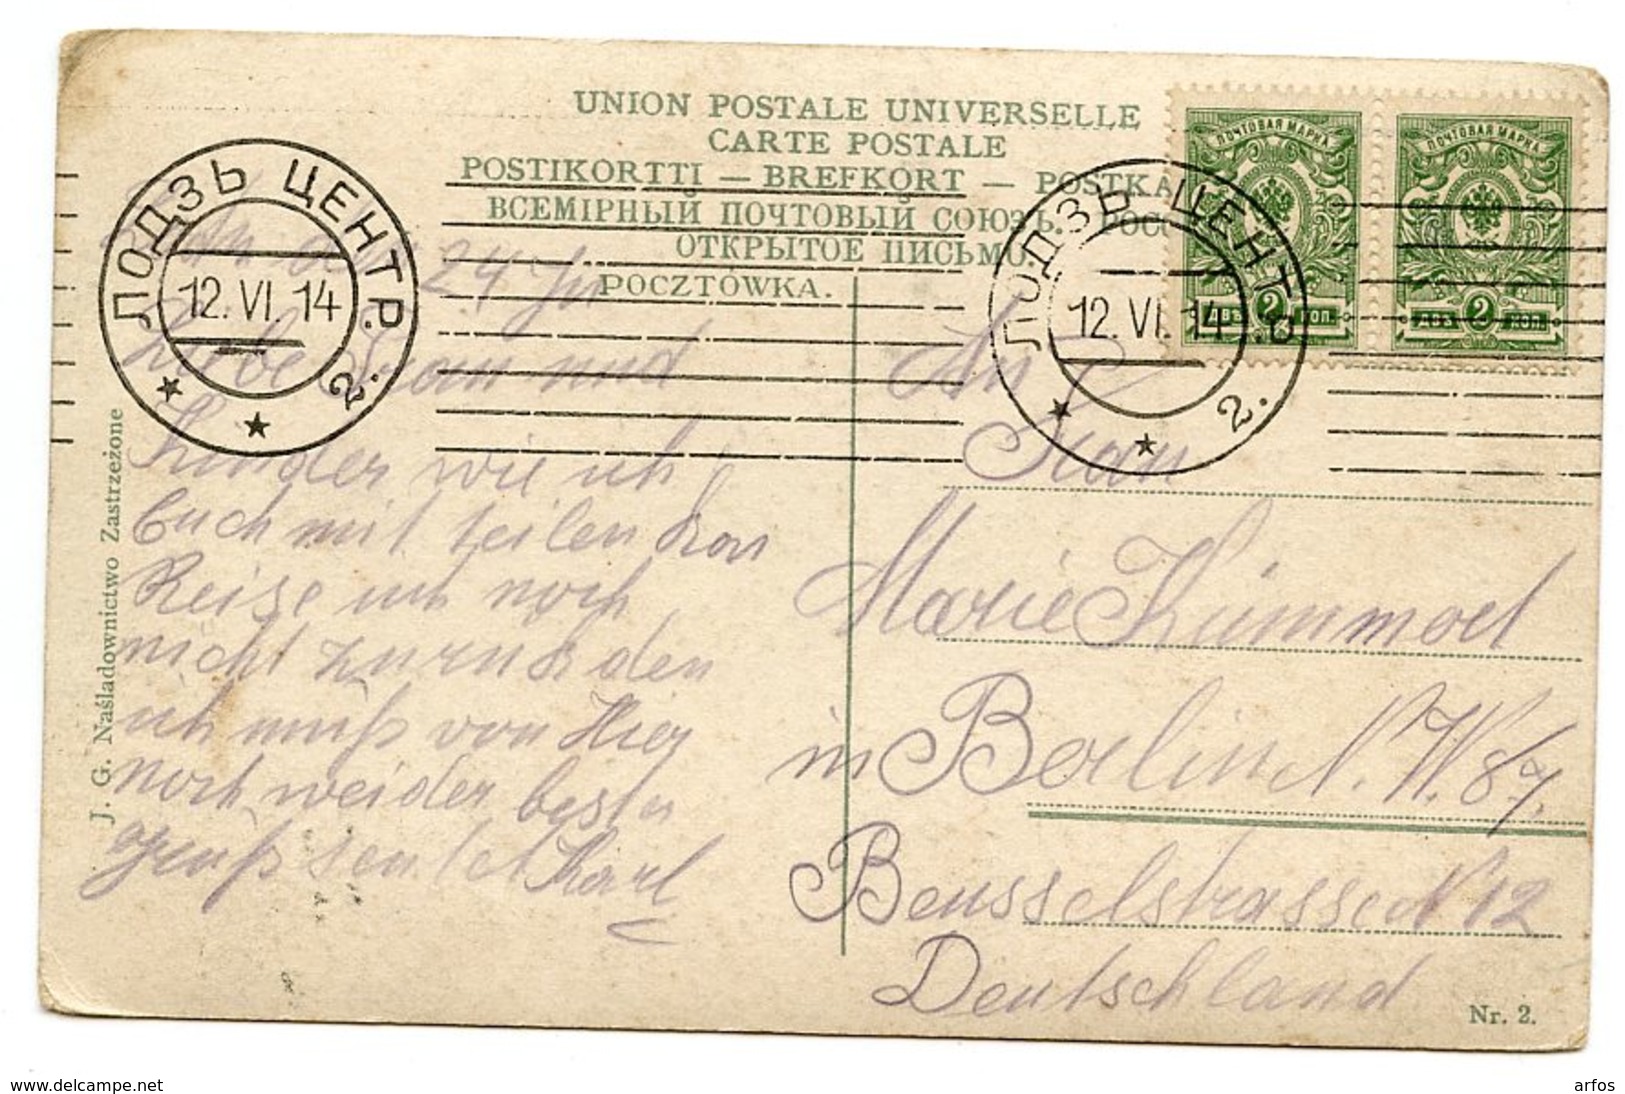 UNION POSTALE UNIVERSELLE
CARTE POSTALE
POSTIKORTTI — BREFKORT — POSTKA
ВСЕМІРНЫЙ ПОЧТОВЫЙ СОЮЗЪ. РОСС
ОТКРЫТОЕ ПИСЬМО.
POCZTÓWKA.
ПОЧТОВАЯ МАРКА
2
ДВѢ КОП.
ПОЧТОВАЯ МАРКА
2
ДВѢ КОП.
ЛОДЗЬ ЦЕНТР.
12. VI. 14
2.
ЛОДЗЬ ЦЕНТ
12. VI. 14
2.
24
Liebe Frau und
Kinder wie ich
Euch mit teilen kan
Reise ich noch
nicht zurück den
ich muß von Hier
noch weider besten
gruß sendet Karl
An
Frau
Marie Kümmel
in Berlin N.W. 87.
Beusselstrasse N 12
Deutschland
J. G. Naśladownictwo Zastrzeżone
Nr. 2.
www.delcampe.net
arfos